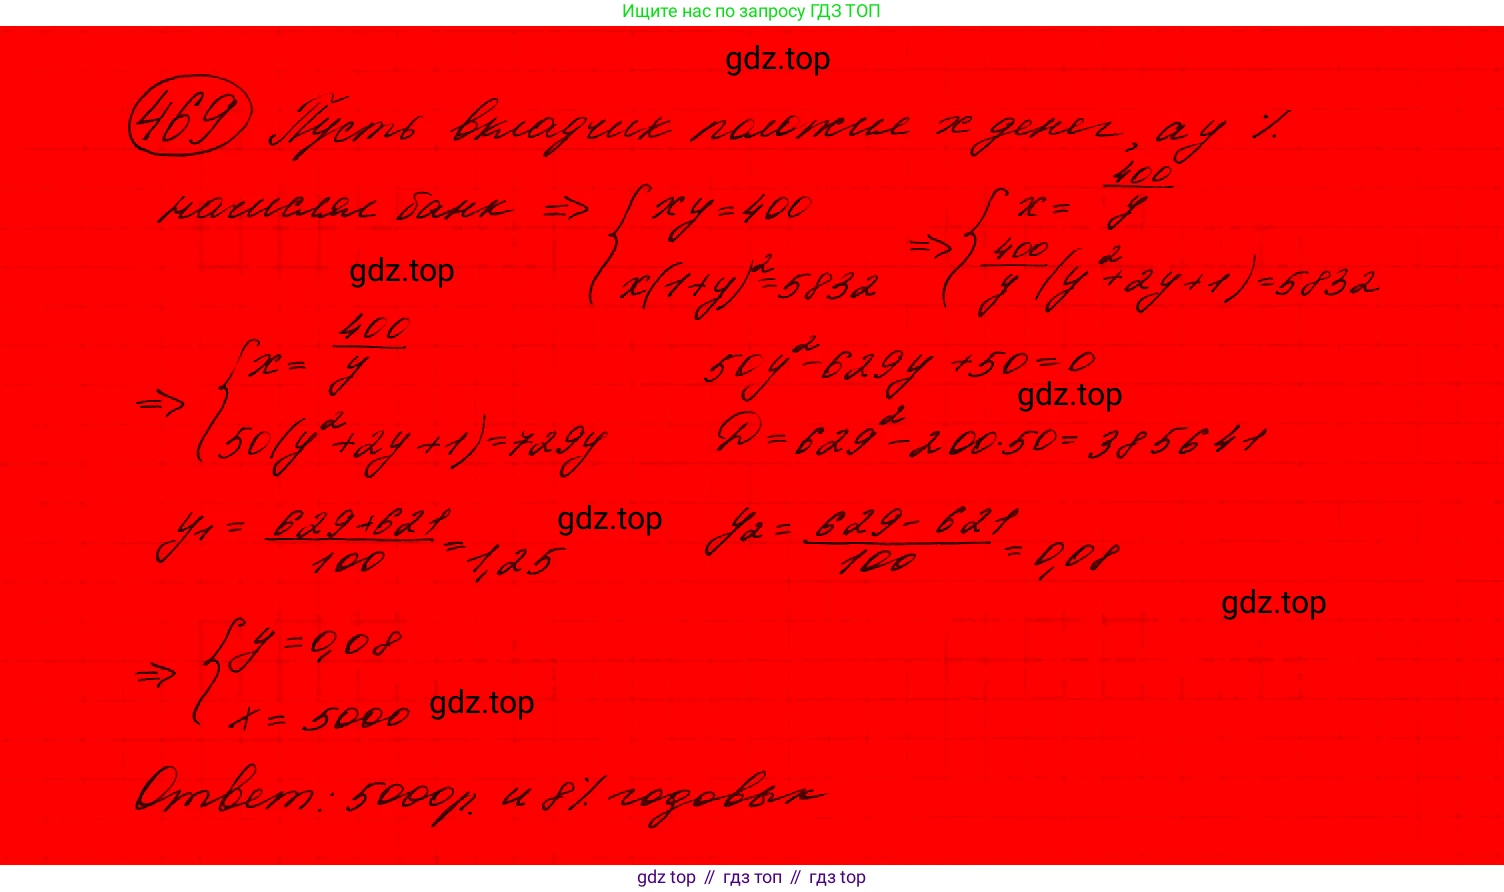 Ищите нас по запросу ГДЗ ТОП
gdz.top
469 Пусть вкладчик положил x денег, а y %
начислял банк => { xy = 400 => { x = 400/y
x(1+y)² = 5832 400/y (y²+2y+1) = 5832
gdz.top
=> { x = 400/y 50y² - 629y + 50 = 0
gdz.top
50(y²+2y+1) = 729y D = 629² - 200·50 = 385641
y₁ = (629+621)/100 = 1,25 gdz.top y₂ = (629-621)/100 = 0,08
gdz.top
=> { y = 0,08
x = 5000 gdz.top
Ответ: 5000р. и 8% годовых
gdz top // гдз топ // гдз top